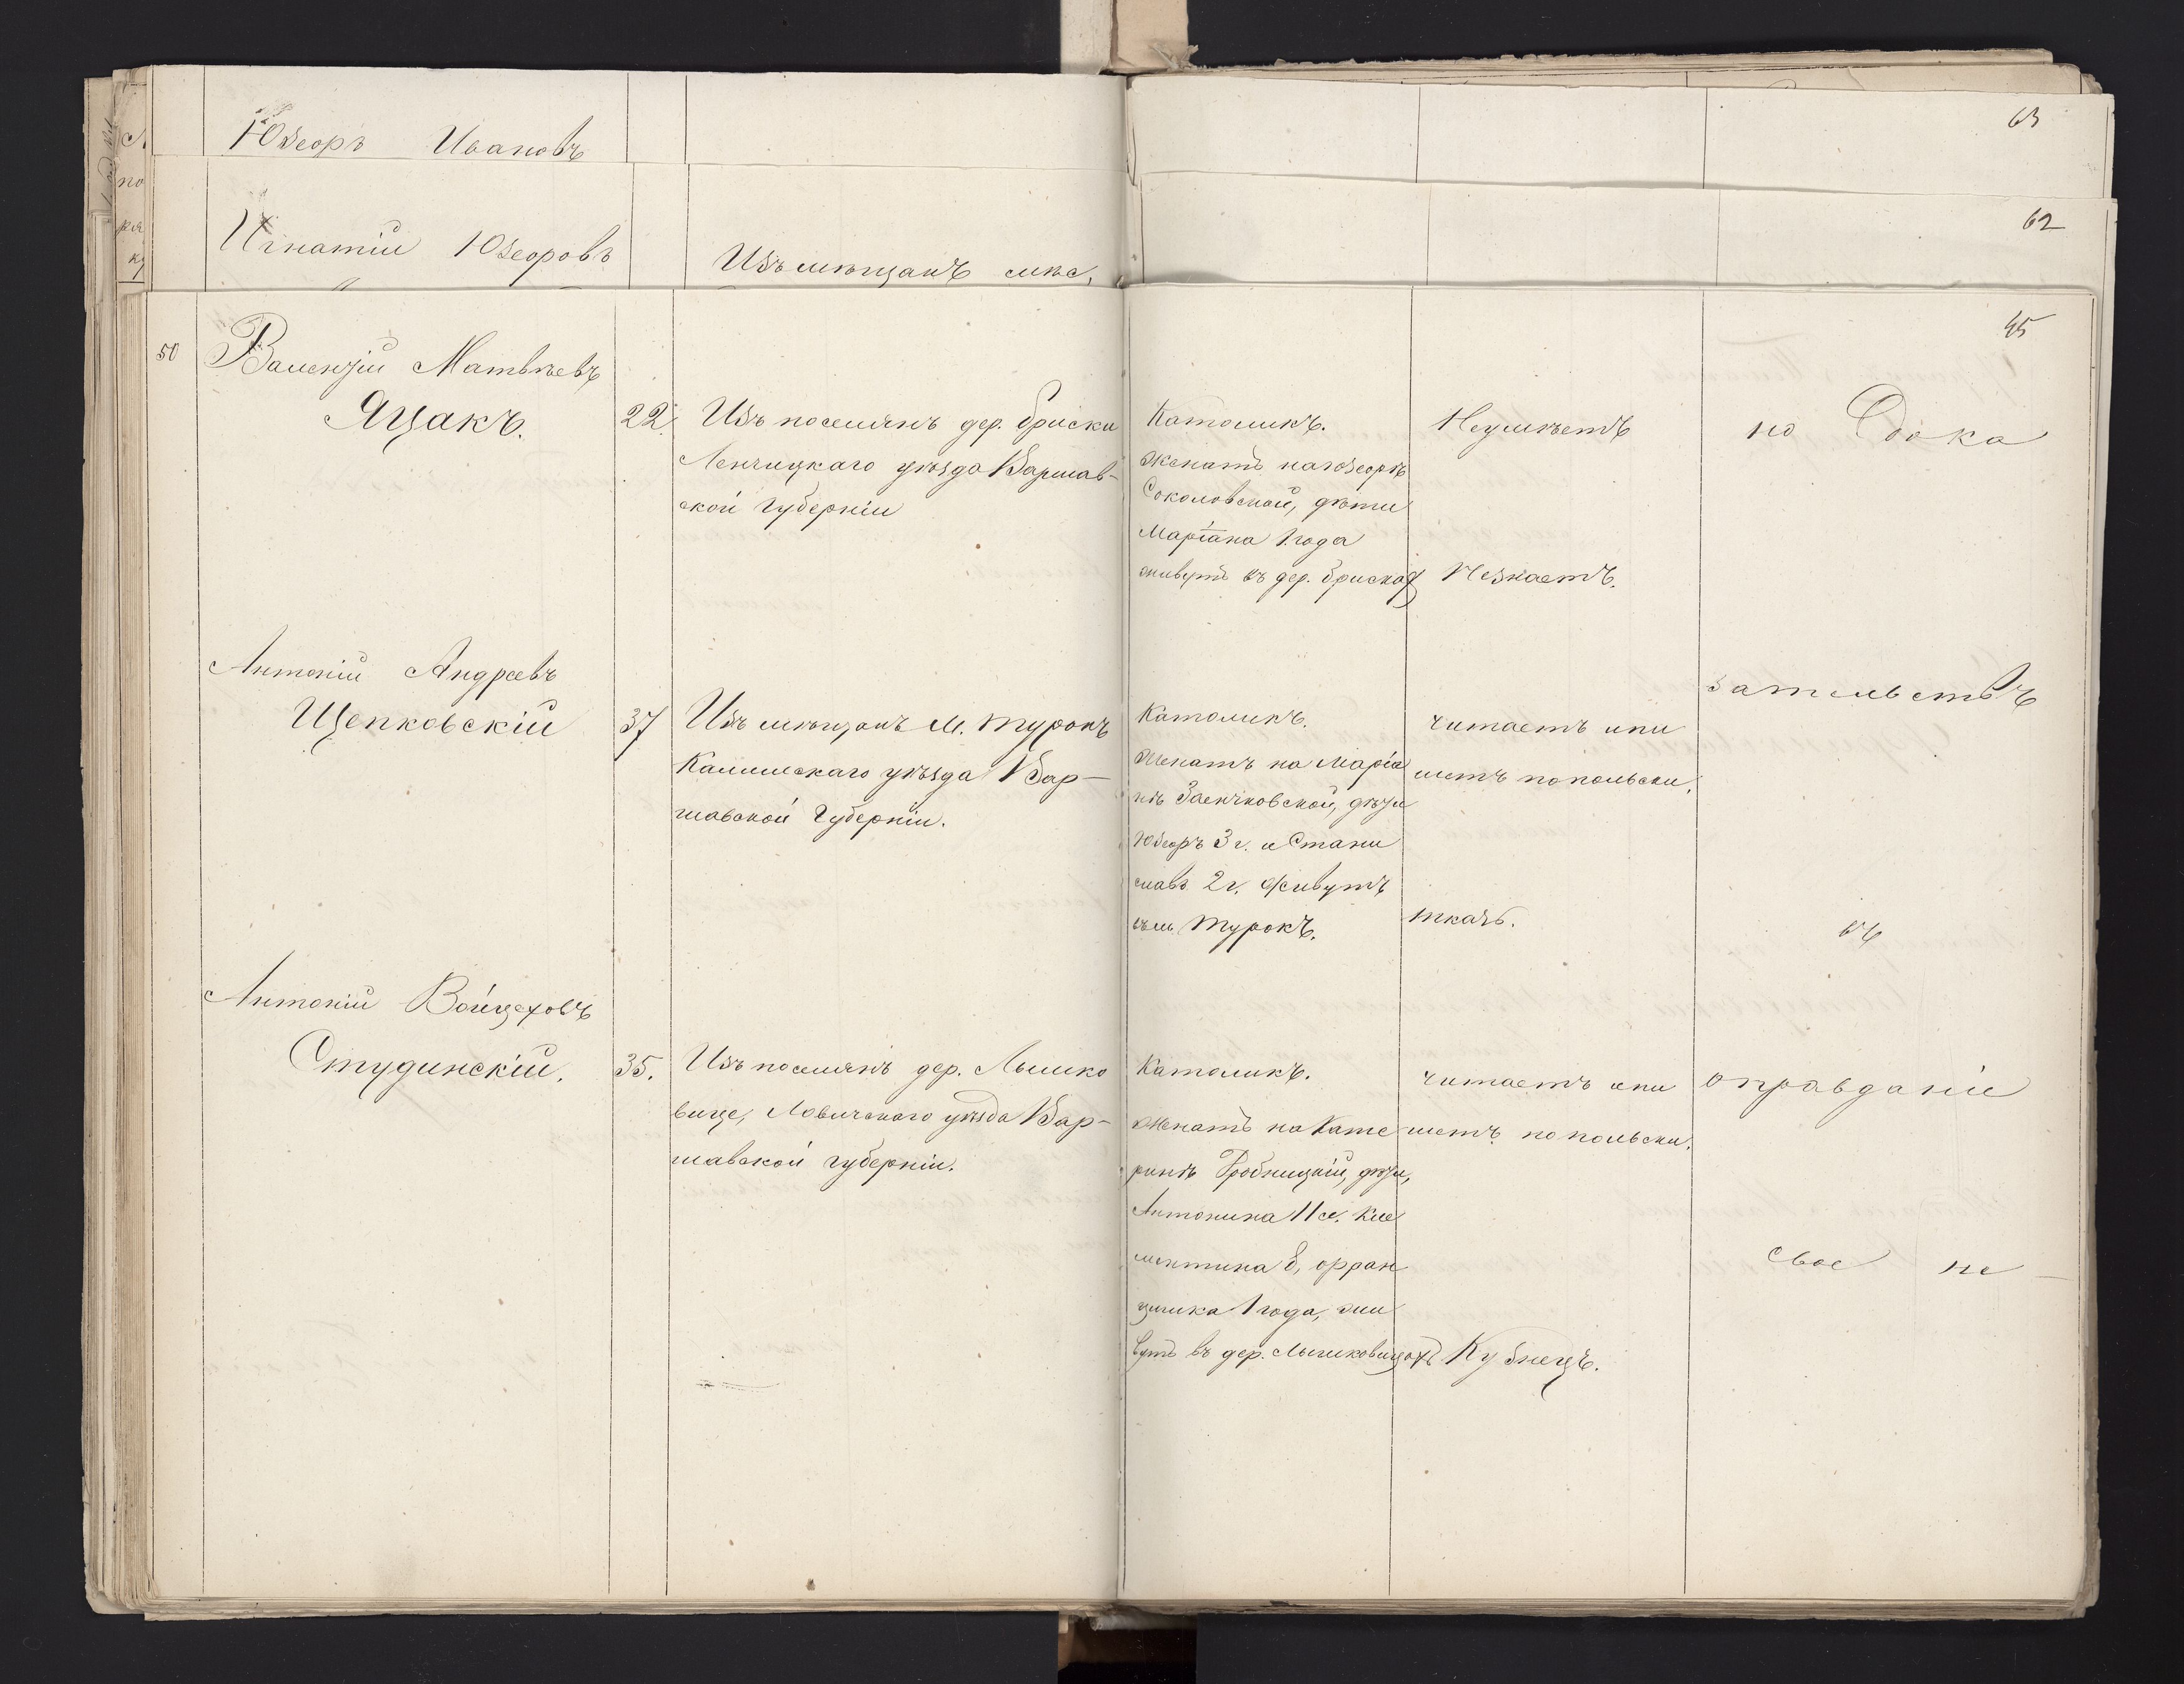 63
Юзефъ Ивановъ
62
Игнатій Юзефовъ
Изъ мѣщанъ мѣс,
45
50
Валентій Матвѣевъ
Яцакъ.
22.
Изъ поселянъ дер. Бриски
Ленчицкаго уѣзда Варшав-
ской Губерніи
Католикъ.
женатъ на Юзефѣ
Соколовской, дѣти
Маріана 1 года
живутъ въ дер. Брисках
Неумѣетъ
Незнаетъ.
но Дока
Антоній Андреевъ
Щепковскій
37
Изъ мѣщанъ М. Турокъ
Калишскаго уѣзда Вар-
шавской Губерніи.
Католикъ.
Женатъ на Маріа
нѣ Заенчковской, дѣти
Юзефъ 3 г. и Стани
славъ 2 г. Живутъ
въ м. Турокъ.
читаетъ и пи
шетъ по польски.
ткачъ.
зательствъ
въ
Антоній Войцеховъ
Студинскій.
35.
Изъ поселянъ дер. Лышко
вице, Ловичскаго уѣзда Вар-
шавской губерніи.
Католикъ.
Женатъ на Кате
ринѣ дѣти,
Антонина 11 л. Кле
ментина 8, Фран
цишка 1 года, жи
вутъ въ дер. Лышковицахъ
читаетъ и пи
шетъ по польски.
Кузнецъ.
оправданіе
свое не —